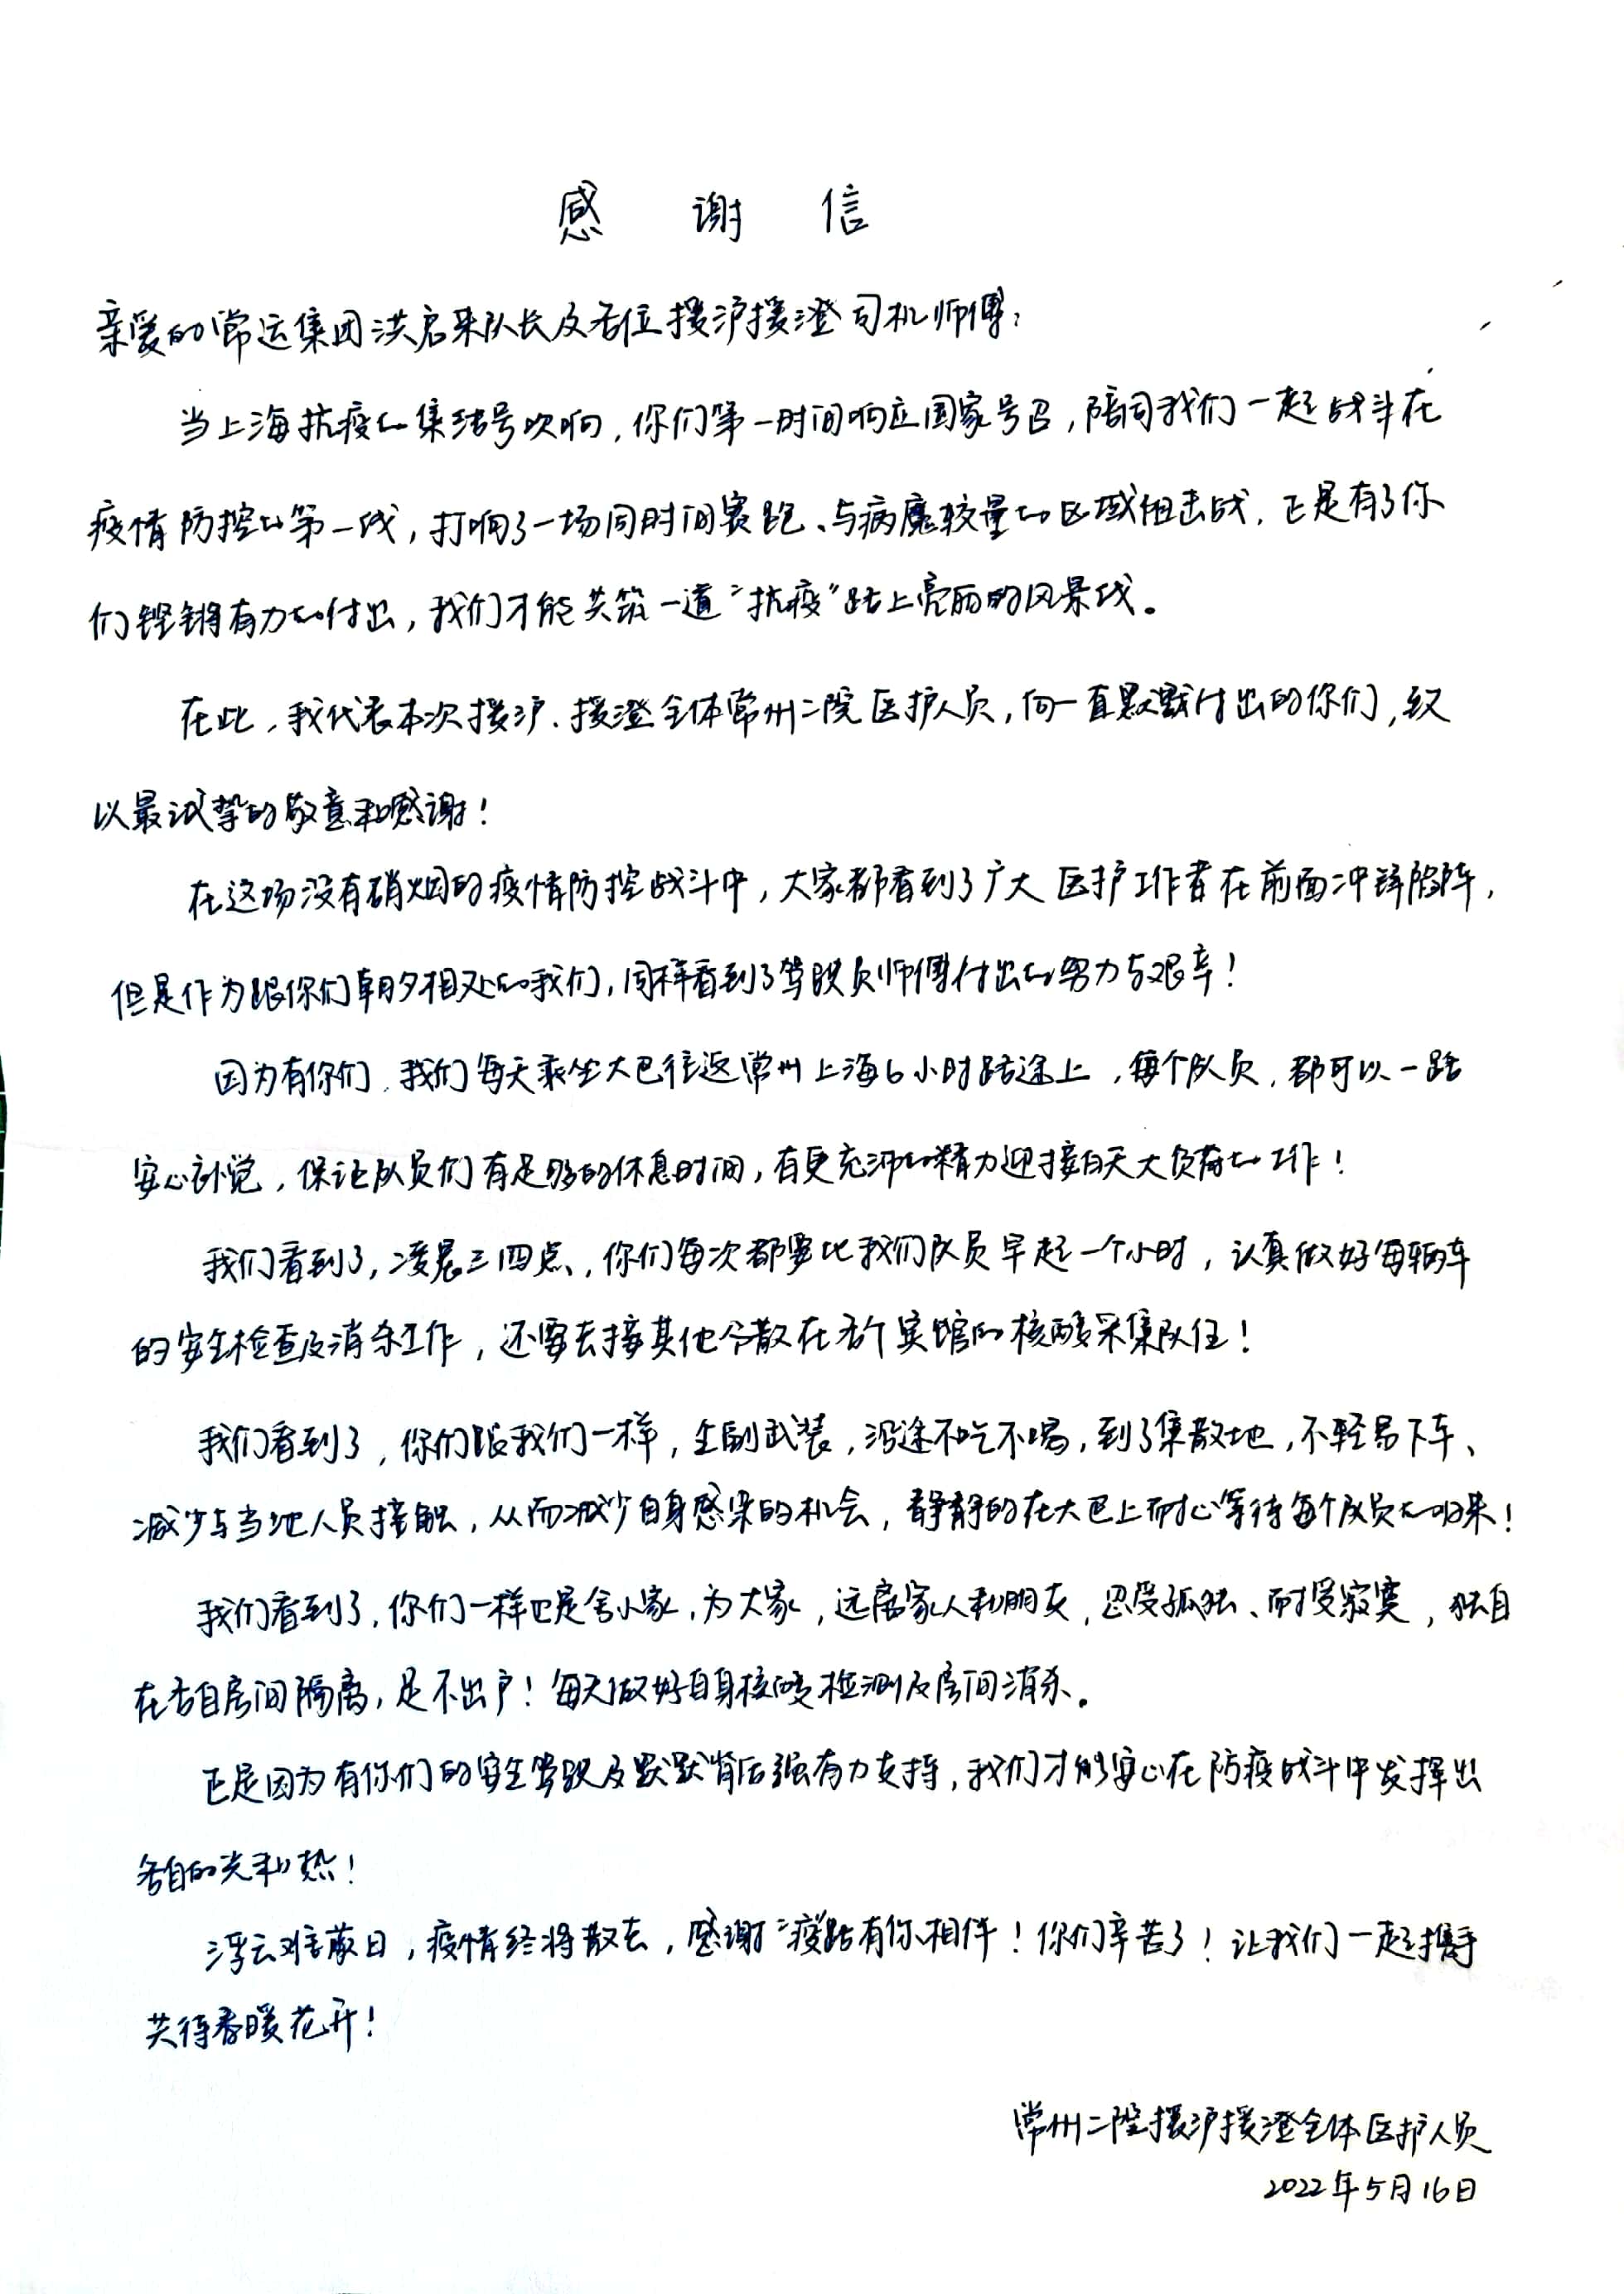 感 谢 信
亲爱的常运集团洪启来队长及各位援沪援澄司机师傅：
当上海抗疫的集结号吹响，你们第一时间响应国家号召，陪同我们一起战斗在
疫情防控的第一线，打响了一场同时间赛跑、与病魔较量的区域阻击战，正是有了你
们铿锵有力的付出，我们才能共筑一道“抗疫”路上亮丽的风景线。
在此，我代表本次援沪、援澄全体常州二院医护人员，向一直默默付出的你们，致
以最诚挚的敬意和感谢！
在这场没有硝烟的疫情防控战斗中，大家都看到了广大医护工作者在前面冲锋陷阵，
但是作为跟你们朝夕相处的我们，同样看到了驾驶员师傅付出的努力与艰辛！
因为有你们，我们每天乘坐大巴往返常州上海6小时路途上，每个队员，都可以一路
安心补觉，保证队员们有足够的休息时间，有更充沛的精力迎接白天大负荷的工作！
我们看到了，凌晨三四点，你们每次都要比我们队员早起一个小时，认真做好每辆车
的安全检查及消杀工作，还要去接其他分散在各个宾馆的核酸采集队伍！
我们看到了，你们跟我们一样，全副武装，沿途不吃不喝，到了集散地，不轻易下车、
减少与当地人员接触，从而减少自身感染的机会，静静的在大巴上耐心等待每个队员的归来！
我们看到了，你们一样也是舍小家，为大家，远离家人和朋友，忍受孤独、耐受寂寞，独自
在各自房间隔离，足不出户！每天做好自身核酸检测及房间消杀。
正是因为有你们的安全驾驶及默默背后强有力支持，我们才能安心在防疫战斗中发挥出
各自的光和热！
浮云难蔽日，疫情终将散去，感谢“疫”路有你相伴！你们辛苦了！让我们一起携手
共待春暖花开！
常州二院援沪援澄全体医护人员
2022年5月16日